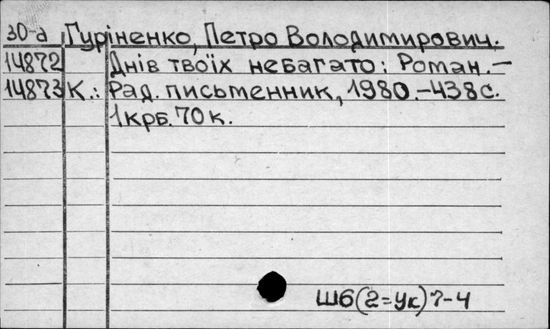 30-а Гуріненко, Петро Володимирович.
14872 Днів твоїх небагато: Роман.—
14873 К.: Рад. письменник, 1980.—438с.
1крб.70к.
Ш6(2=Ук)7-4